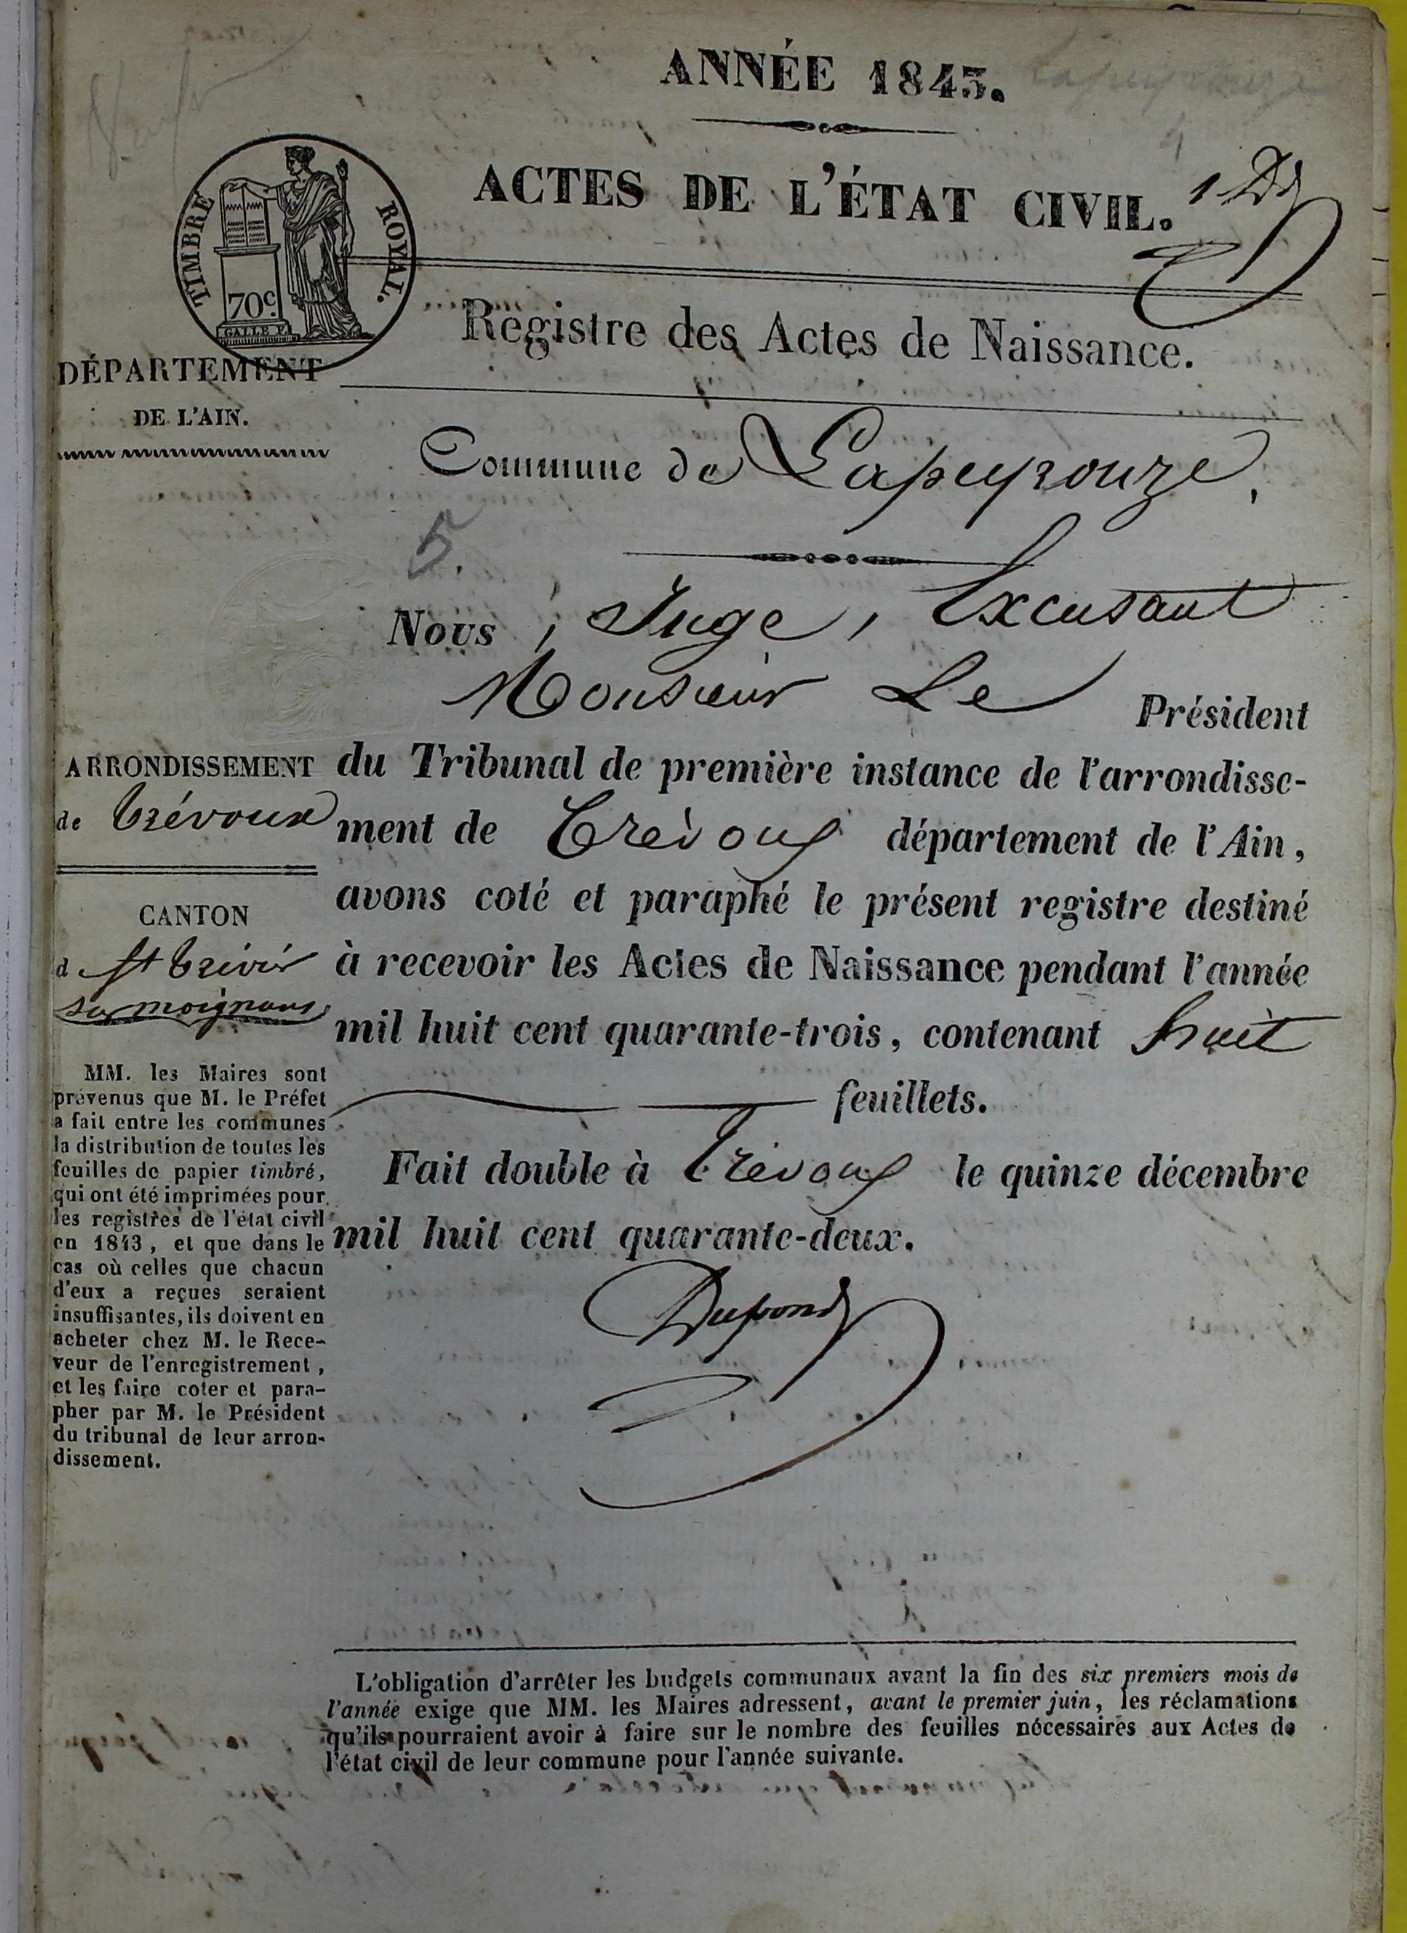 ANNÉE 1843.
Lapeyrouze
ACTES DE L'ÉTAT CIVIL.
1
TIMBRE ROYAL.
70c.
GALLE F.
Registre des Actes de Naissance.
DÉPARTEMENT
DE L'AIN.
Commune de Lapeyrouze,
5.
Nous, Juge, Excusant
Monsieur Le Président
du Tribunal de première instance de l'arrondisse-
ment de Trévoux département de l'Ain,
avons coté et paraphé le présent registre destiné
à recevoir les Actes de Naissance pendant l'année
mil huit cent quarante-trois, contenant huit
feuillets.
Fait double à Trévoux le quinze décembre
mil huit cent quarante-deux.
Dupond
ARRONDISSEMENT
de Trévoux
CANTON
d St Trivier
sur moignans
MM. les Maires sont
prévenus que M. le Préfet
a fait entre les communes
la distribution de toutes les
feuilles de papier timbré,
qui ont été imprimées pour
les registres de l'état civil
en 1843, et que dans le
cas où celles que chacun
d'eux a reçues seraient
insuffisantes, ils doivent en
acheter chez M. le Rece-
veur de l'enregistrement,
et les faire coter et para-
pher par M. le Président
du tribunal de leur arron-
dissement.
L'obligation d'arrêter les budgets communaux avant la fin des six premiers mois de
l'année exige que MM. les Maires adressent, avant le premier juin, les réclamations
qu'ils pourraient avoir à faire sur le nombre des feuilles nécessaires aux Actes de
l'état civil de leur commune pour l'année suivante.